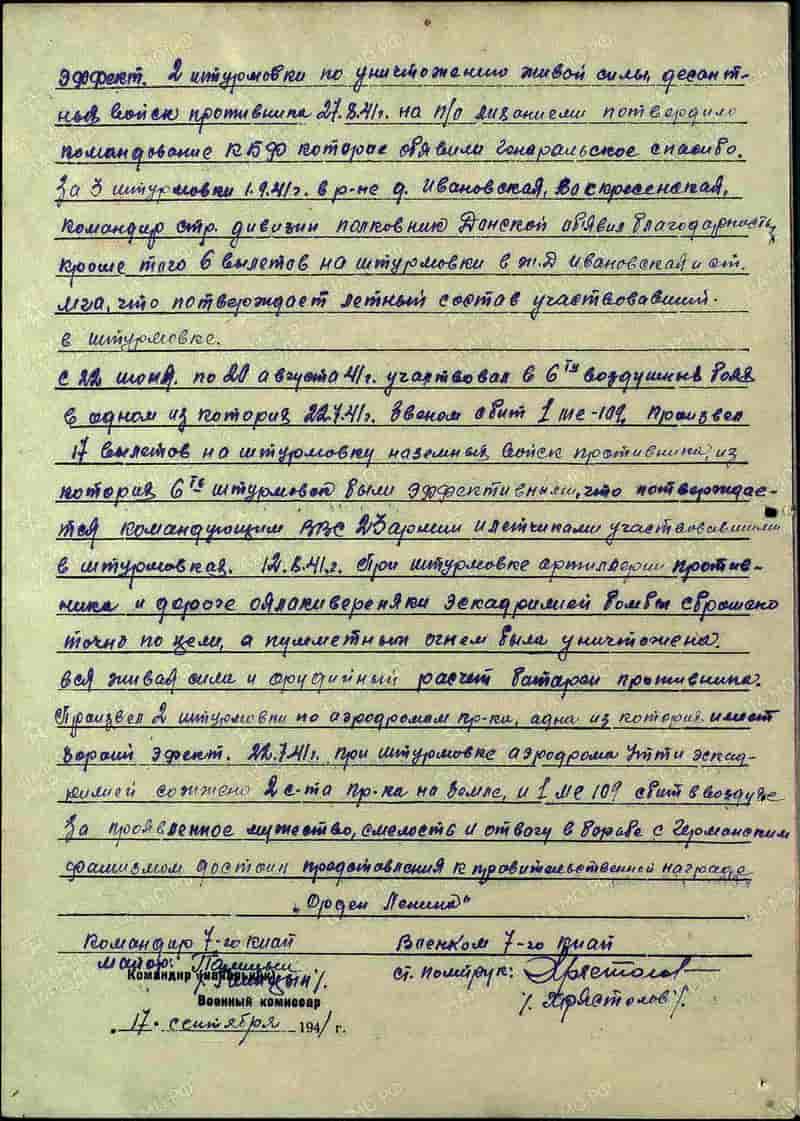 эффект. 2 штурмовки по уничтожению живой силы, десант-
ных войск противника 27.8.41г. на п/о потвердило
командование КБФ которае обявили Генеральское спасибо.
За 3 штурмовки 1.9.41г. в р-не д. Ивановская, Воскресенская,
командир стр. дивизии полковник Донской обявил благодарность,
кроме того 6 вылетов на штурмовки в ж.д Ивановской и ст.
Мга, что потверждает летный состав участвовавший
в штурмовке.
С 22 июня. по 20 августа 41г. участвовал в 6ти воздушных боях
в одном из которых 22.7.41г. Звеном сбит 1 ме-109, Произвел
17 вылетов на штурмовку наземных войск противника, из
которых 6ть штурмовок были эффективными, что потверждае-
тся командующим ВВС 23 армии и летчиками участвовавшими
в штурмовках. 12.8.41.г. При штурмовке артиллерии против-
ника и дороге эскадрилией бомбы сброшено
точно по цели, а пулеметным огнем была уничтожена
вся живая сила и орудийный расчет батареи противника.
Произвел 2 штурмовки по аэродромам пр-ка, одна из которых имеет
хороший эфект. 22.7.41г. при штурмовке аэродрома Утти эскад-
рилией сожжено 2 с-та пр-ка на земле, и 1 МЕ 109 сбит в воздухе
За проявленное мужество, смелость и отвагу в борьбе с Германским
фашизмом достоин представления к правительственной награде
„Орден Ленина"
Командир 7-го киап Военком 7-го киап
майор: ст. политрук: Хрястолов
Командир
/. Хрястолов /.
Военный комиссар
„17" сентября 1941 г.